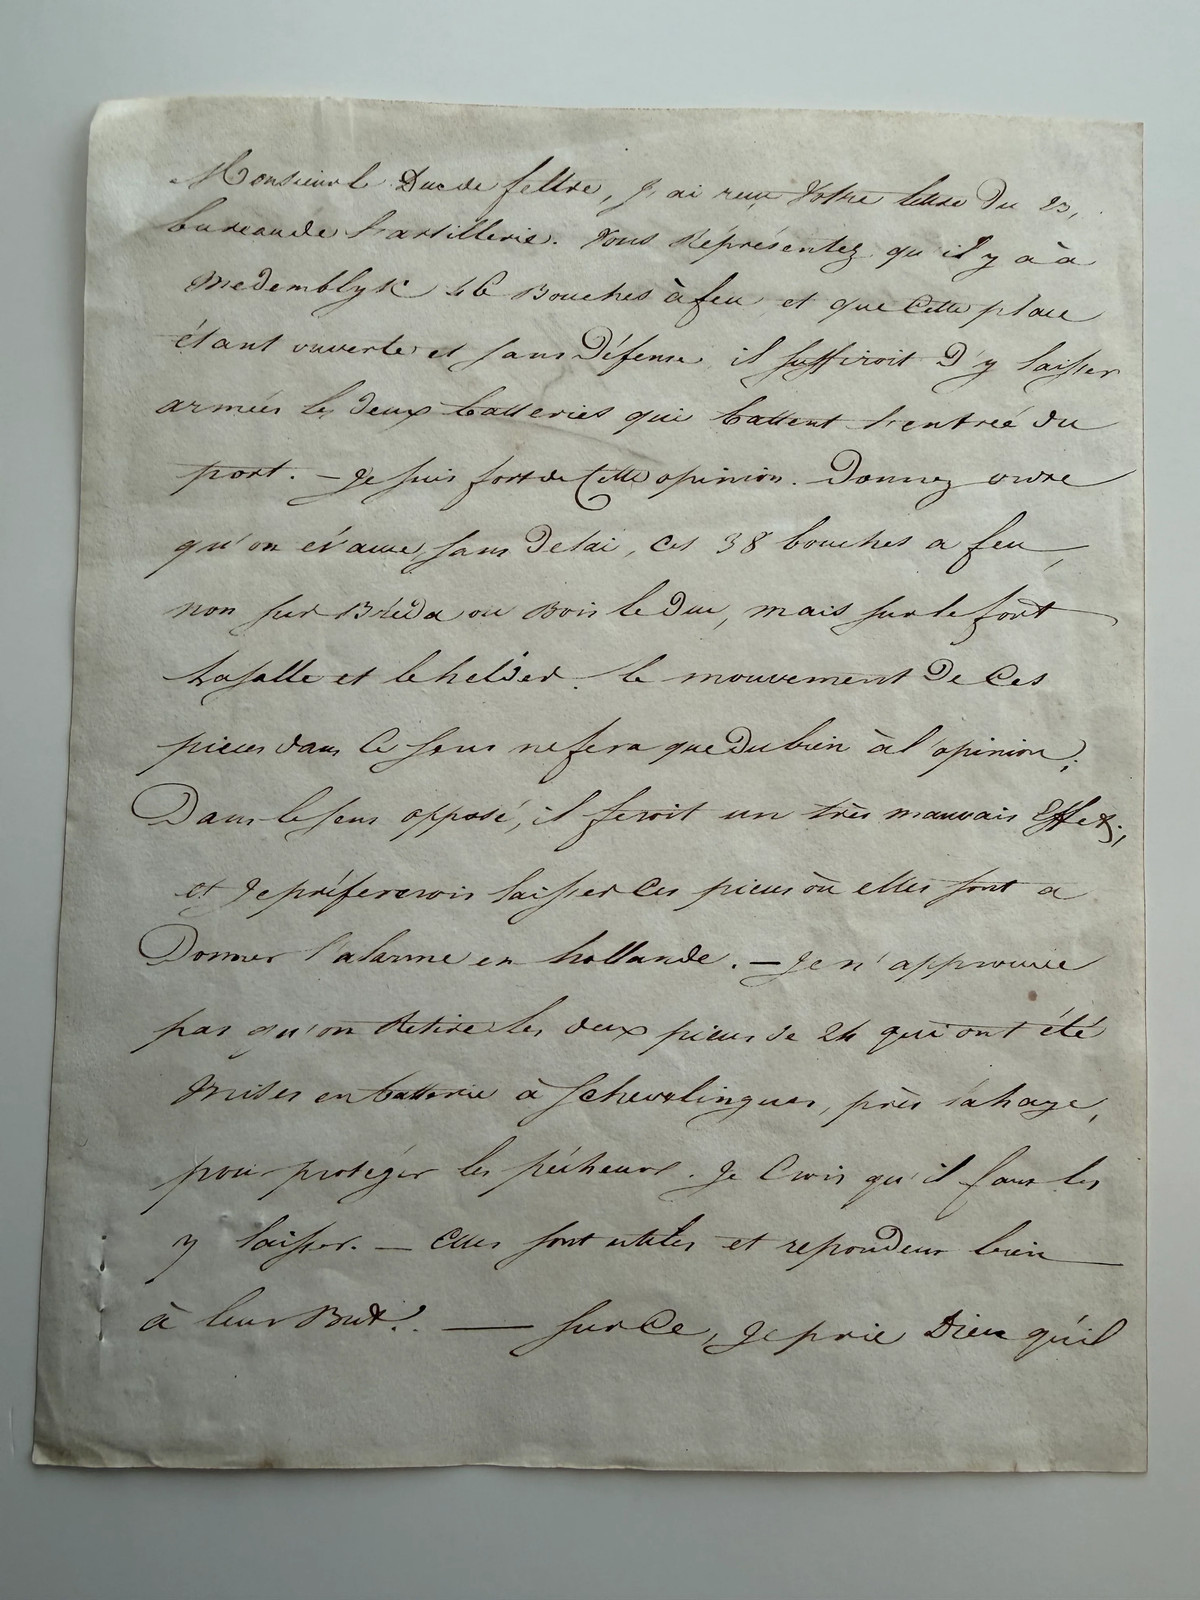 Monsieur le Duc de feltre, J'ai reçu Votre lettre du 23,
bureau de l'artillerie. Vous Représentez qu'il y a à
Medemblyk 46 Bouches à feu et que Cette place
étant ouverte et sans Défense, il suffiroit D'y laisser
armées les deux batteries qui battent l'entrée du
port. — Je suis fort de Cette opinion. Donnez ordre
qu'on évacue sans Delai, ces 38 bouches a feu,
non sur Bréda ou Bois le Duc, mais sur le fort
Lasalle et le helder. le mouvement De Ces
pieces dans Ce sens ne fera que Du bien à l'opinion;
Dans le sens opposé, il feroit un très mauvais Effet;
et Je préfererois laisser Ces pieces où elles sont a
Donner l'alarme en hollande. — Je n'approuve
pas qu'on Retire les deux pieces de 24 qui ont été
Mises en batterie à Schevelingues, près lahaye,
pour protéger les pécheurs. Je Crois qu'il faut les
y laisser. — Elles sont utiles et repondent bien
à leur But. — sur Ce, Je prie Dieu qu'il